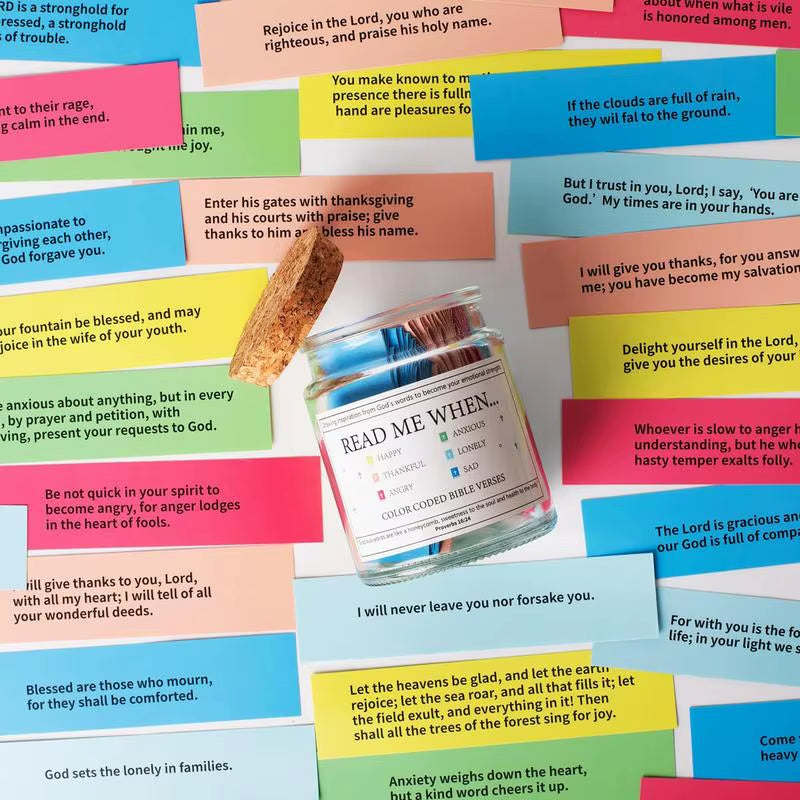 RD is a stronghold for
ressed, a stronghold
s of trouble.
Rejoice in the Lord, you who are
righteous, and praise his holy name.
about when what is vile
is honored among men.
nt to their rage,
g calm in the end.
in me,
me joy.
You make known to m
presence there is fulln
hand are pleasures fo
If the clouds are full of rain,
they wil fal to the ground.
Enter his gates with thanksgiving
and his courts with praise; give
thanks to him and bless his name.
But I trust in you, Lord; I say, ‘You are
God.’ My times are in your hands.
mpassionate to
rgiving each other,
God forgave you.
I will give you thanks, for you answ
me; you have become my salvation
our fountain be blessed, and may
joice in the wife of your youth.
Delight yourself in the Lord,
give you the desires of your
e anxious about anything, but in every
, by prayer and petition, with
ving, present your requests to God.
Drawing inspiration from God's words to become your emotional strength
READ ME WHEN...
HAPPY
ANXIOUS
THANKFUL
LONELY
ANGRY
SAD
COLOR CODED BIBLE VERSES
Gracious words are like a honeycomb, sweetness to the soul and health to the body
Proverbs 16:24
Whoever is slow to anger h
understanding, but he who
hasty temper exalts folly.
Be not quick in your spirit to
become angry, for anger lodges
in the heart of fools.
The Lord is gracious and
our God is full of compa
will give thanks to you, Lord,
with all my heart; I will tell of all
your wonderful deeds.
I will never leave you nor forsake you.
For with you is the fo
life; in your light we s
Blessed are those who mourn,
for they shall be comforted.
Let the heavens be glad, and let the earth
rejoice; let the sea roar, and all that fills it; let
the field exult, and everything in it! Then
shall all the trees of the forest sing for joy.
Come
heavy
God sets the lonely in families.
Anxiety weighs down the heart,
but a kind word cheers it up.